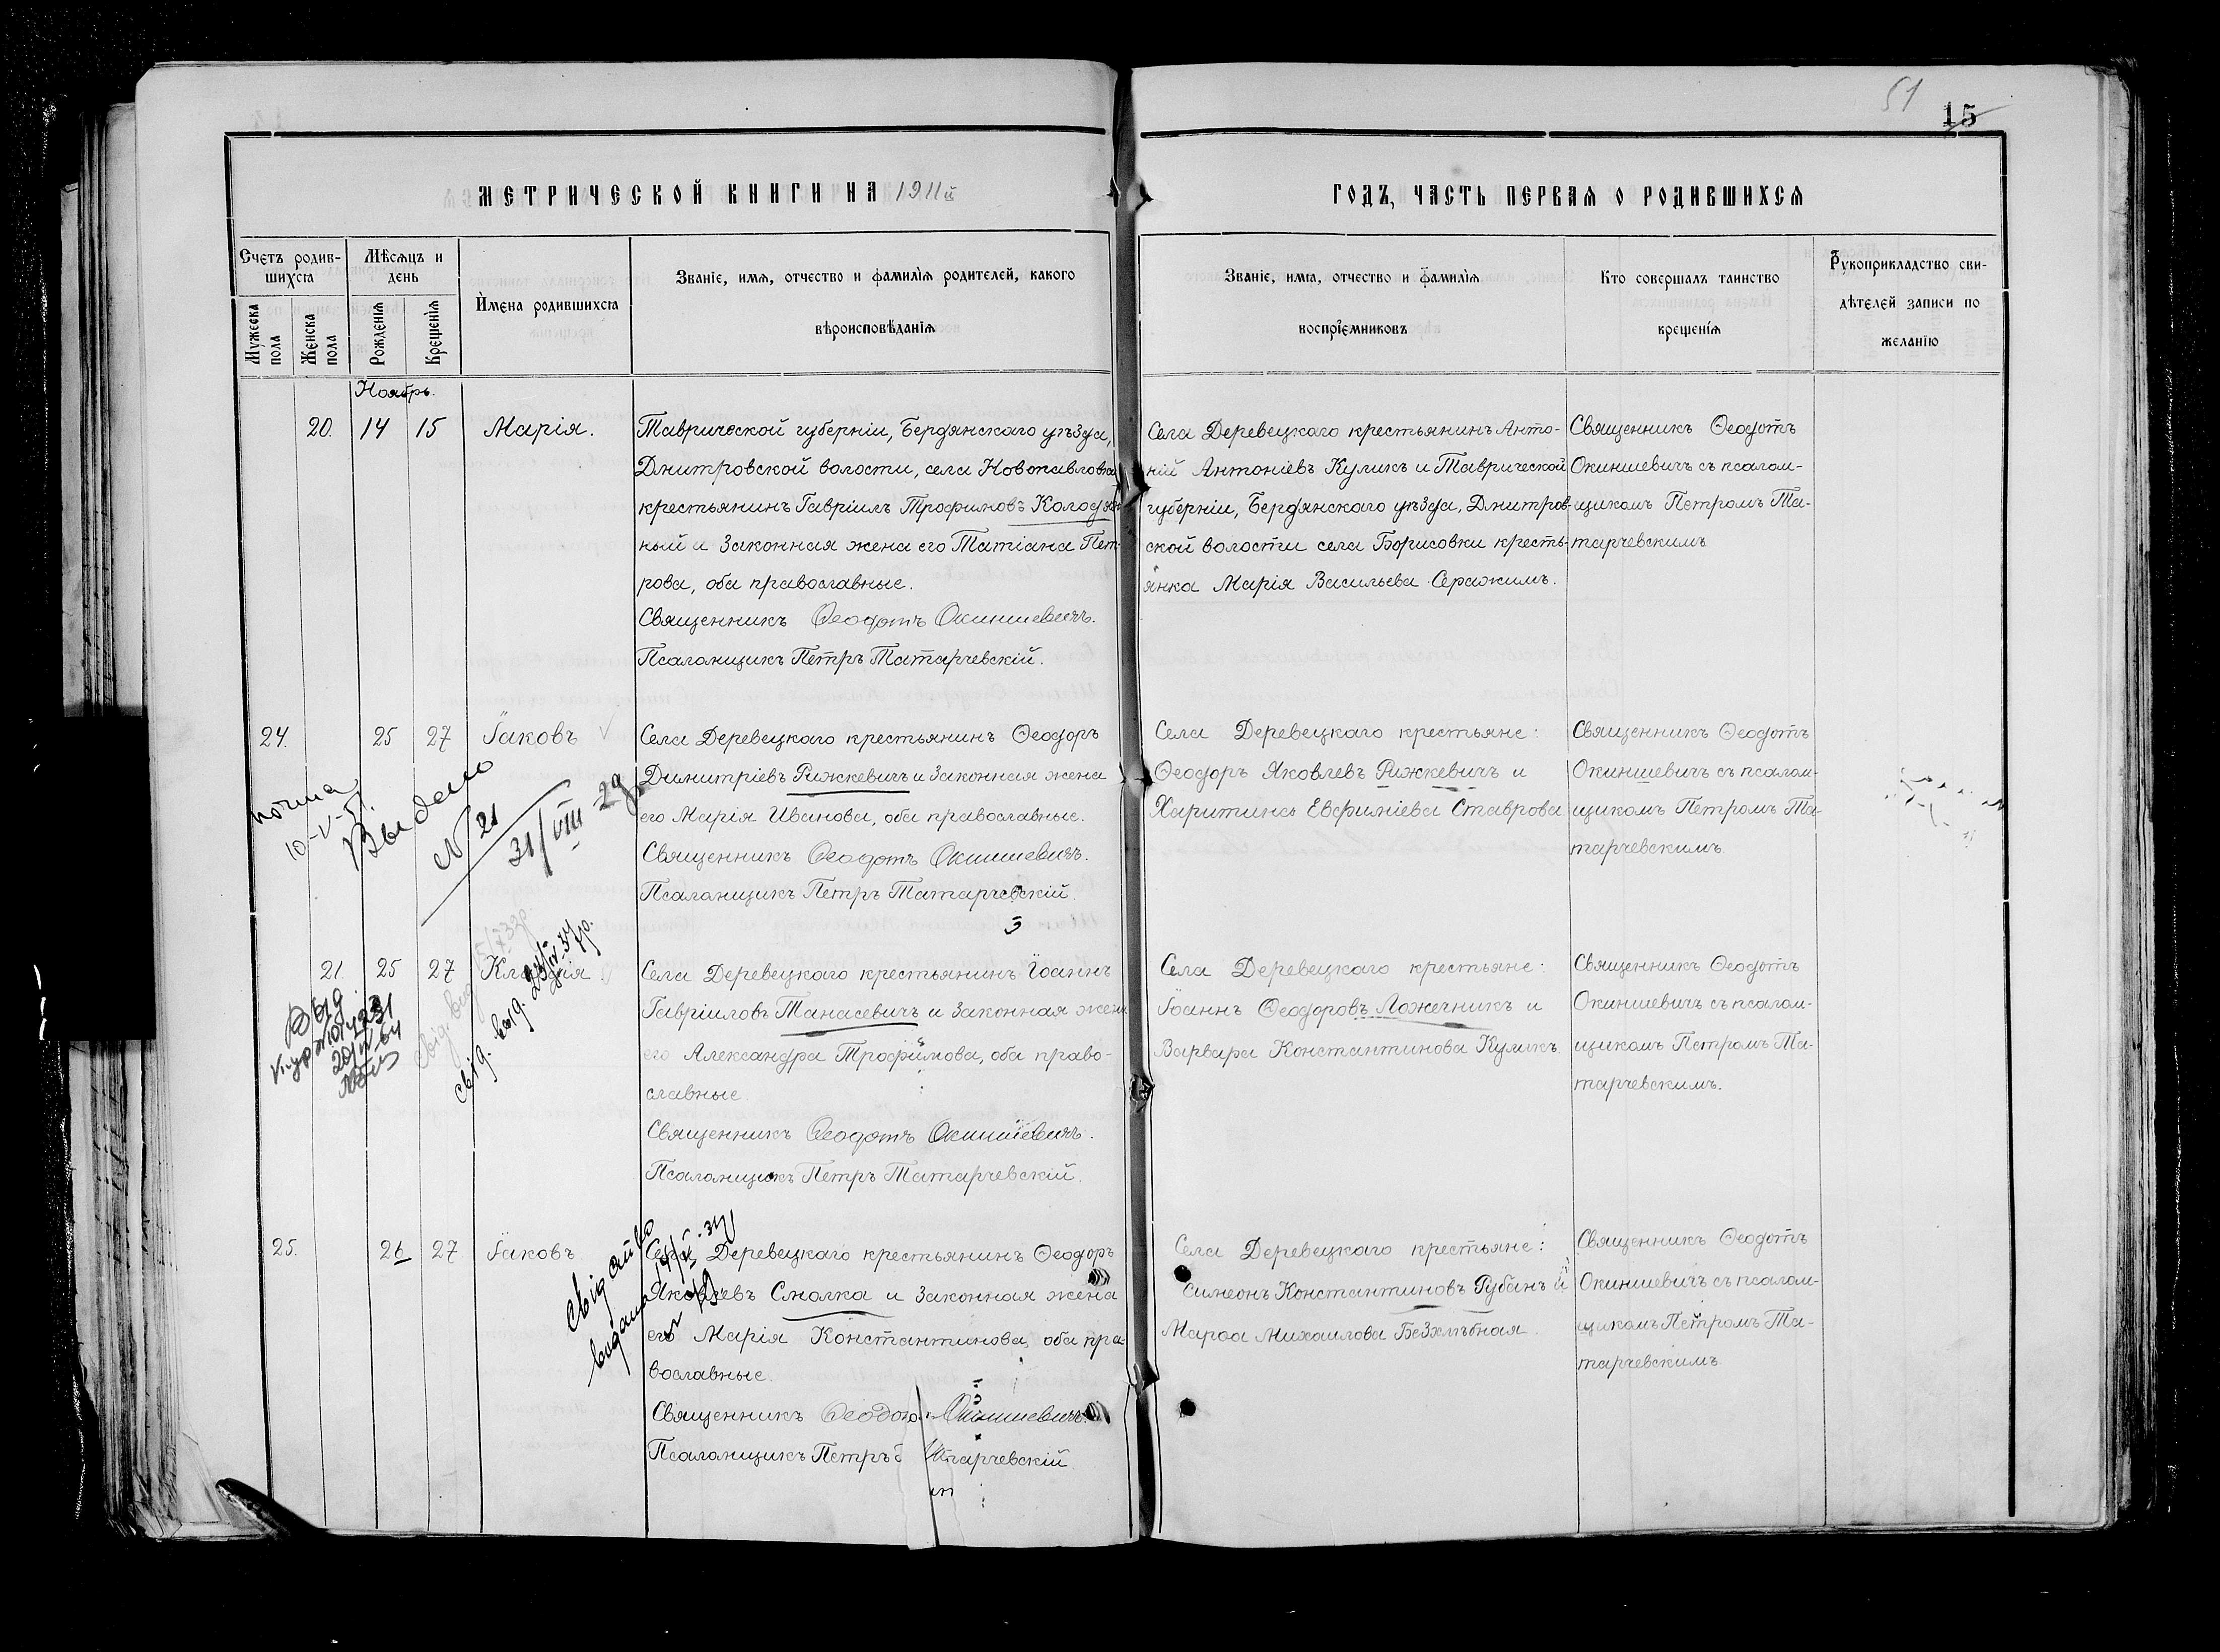 51
15
МЕТРИЧЕСКОЙ КНИГИ НА 1911й
ГОДЪ, ЧАСТЬ ПЕРВАЯ О РОДИВШИХСЯ
Счетъ родив-
шихся
Мужеска
пола
Женска
пола
Мѣсяцъ и
день
Рожденія
Крещенія
Имена родившихся
Званіе, имя, отчество и фамилія родителей, какого
вѣроисповѣданія
Званіе, имя, отчество и фамилія
воспріемниковъ
Кто совершалъ таинство
крещенія
Рукоприкладство сви-
дѣтелей записи по
желанію
Ноябрь.
20. 14 15 Марія.
Таврической губерніи, Бердянскаго уѣзда,
Дмитровской волости, села Новопавловки
крестьянинъ Гавріилъ Трофимовъ Колодяж
ный и законная жена его Татіана Пет-
рова, оба православные.
Священникъ Ѳеодотъ Окиншевичъ.
Псаломщикъ Петръ Татарчевскій.
Села Деревецкаго крестьянинъ Анто-
ній Антоніевъ Куликъ и Таврической
губерніи, Бердянскаго уѣзда, Дмитров-
ской волости села Борисовки кресть-
янка Марія Васильева Серажимъ.
Священникъ Ѳеодотъ
Окиншевичъ съ псалом-
щикомъ Петромъ Та-
тарчевскимъ
24. 25 27 Іаковъ
Села Деревецкаго крестьянинъ Ѳеодоръ
Димитріевъ Рижкевичъ и законная жена
его Марія Иванова, оба православные.
Священникъ Ѳеодотъ Окиншевичъ.
Псаломщикъ Петръ Татарчевскій.
Села Деревецкаго крестьяне:
Ѳеодоръ Яковлевъ Рижкевичъ и
Харитина Евфиміева Ставрова
Священникъ Ѳеодотъ
Окиншевичъ съ псалом-
щикомъ Петромъ Та-
тарчевскимъ.
10-V-51.
Выдано
№ 21
31/VIII-29
21. 25 27 Клавдія
Села Деревецкаго крестьянинъ Іоаннъ
Гавріиловъ Танасевичъ и законная жена
его Александра Трофимова, оба право-
славные
Священникъ Ѳеодотъ Окиншевичъ.
Псаломщикъ Петръ Татарчевскій.
Села Деревецкаго крестьяне:
Іоаннъ Ѳеодоровъ Ложечникъ и
Варвара Константинова Куликъ
Священникъ Ѳеодотъ
Окиншевичъ съ псалом-
щикомъ Петромъ Та-
тарчевскимъ.
25. 26 27 Іаковъ
Села Деревецкаго крестьянинъ Ѳеодоръ
Яковлевъ Смалка и законная жена
его Марія Константинова, оба пра-
вославные.
Священникъ Ѳеодотъ Окиншевичъ.
Псаломщикъ Петръ Татарчевскій.
Села Деревецкаго крестьяне:
Симеонъ Константиновъ Рубанъ и
Марѳа Михаилова Безхлѣбная
Священникъ Ѳеодотъ
Окиншевичъ съ псалом-
щикомъ Петромъ Та-
тарчевскимъ.